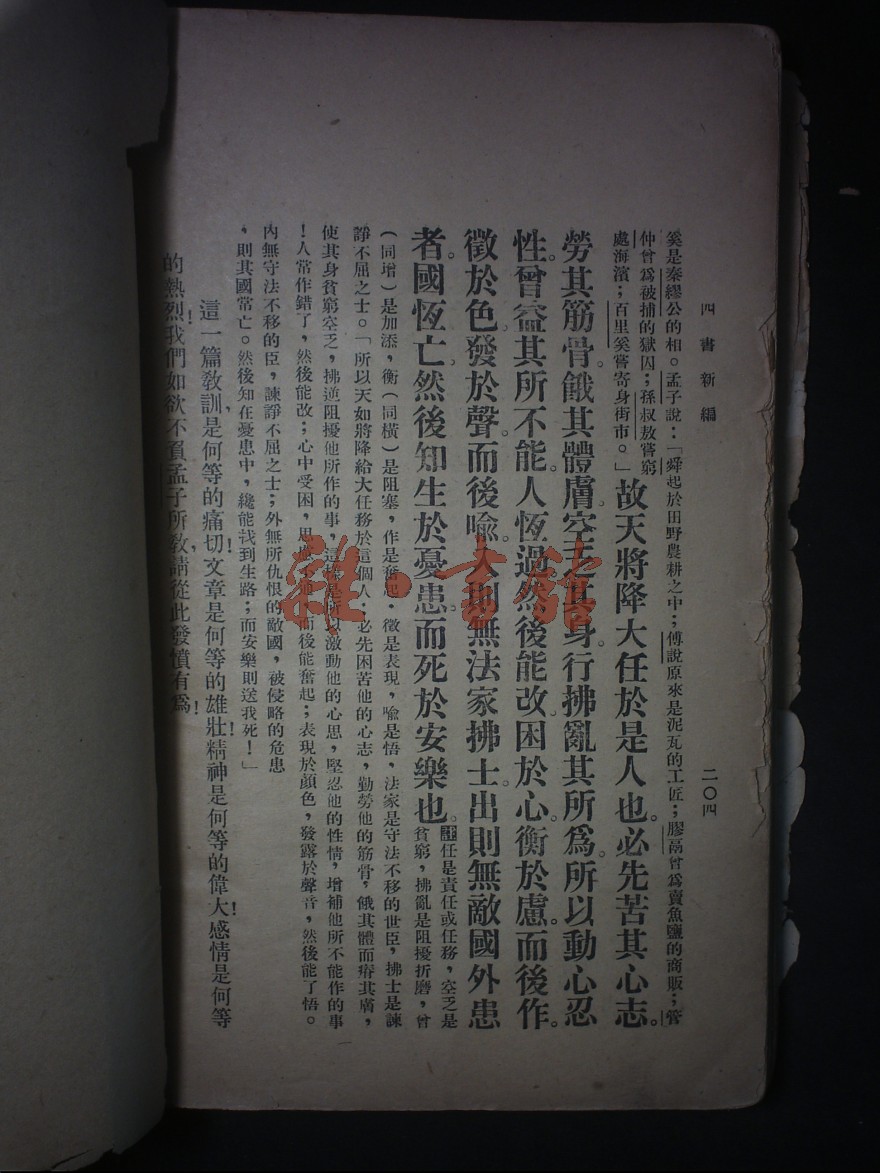 四書新編
二〇四
奚是秦繆公的相。孟子說：「舜起於田野農耕之中；傅說原來是泥瓦的工匠；膠鬲曾爲賣魚鹽的商販；管
仲曾爲被捕的獄囚；孫叔敖嘗窮
處海濱；百里奚嘗寄身街市。」
故天將降大任於是人也。必先苦其心志。
勞其筋骨。餓其體膚。空乏其身。行拂亂其所爲。所以動心忍
性。曾益其所不能。人恆過。然後能改。困於心。衡於慮。而後作。
徵於色。發於聲。而後喩。入則無法家拂士。出則無敵國外患
者。國恆亡。然後知生於憂患。而死於安樂也。
註任是責任或任務，空乏是
貧窮，拂亂是阻擾折磨，曾
（同增）是加添，衡（同橫）是阻塞，作是奮起．徵是表現，喩是悟，法家是守法不移的世臣，拂士是諫
諍不屈之士。「所以天如將降給大任務於這個人；必先困苦他的心志，勤勞他的筋骨，餓其體而瘠其膚，
使其身貧窮空乏，拂逆阻擾他所作的事，這樣是所以激動他的心思，堅忍他的性情，增補他所不能作的事
！人常作錯了，然後能改；心中受困，思慮不通，而後能奮起；表現於顏色，發露於聲音，然後能了悟。
內無守法不移的臣，諫諍不屈之士；外無所仇恨的敵國，被侵略的危患
，則其國常亡。然後知在憂患中，纔能找到生路；而安樂則送我死！」
這一篇教訓，是何等的痛切！文章是何等的雄壯！精神是何等的偉大！感情是何等
的熱烈！我們如欲不負孟子所教，請從此發憤有爲！
雜·書館